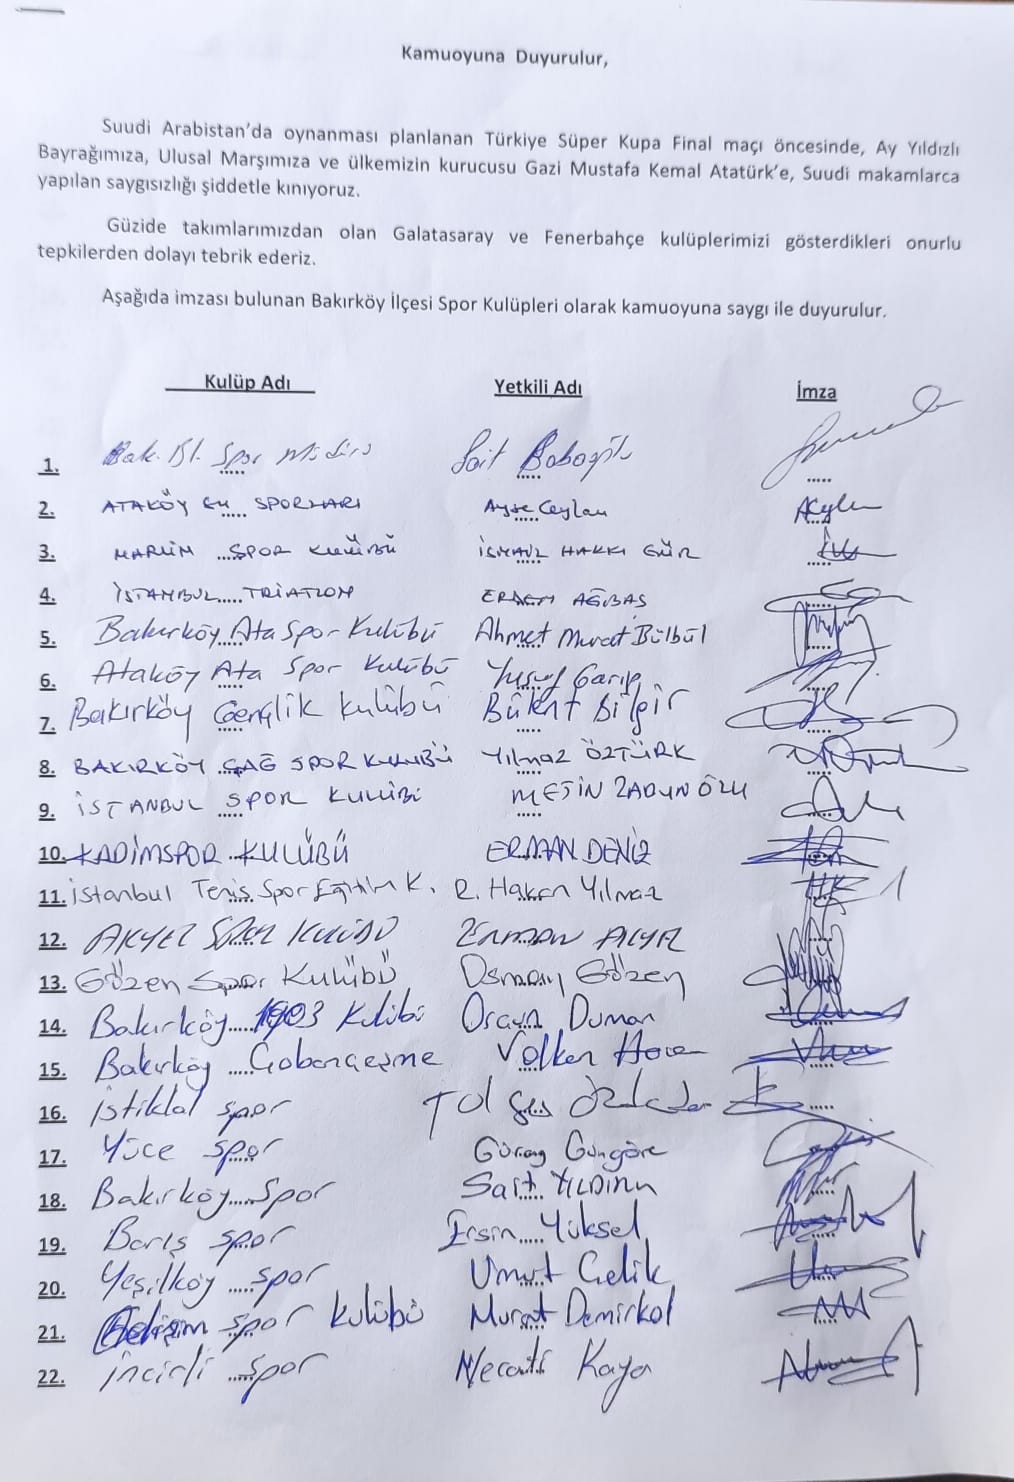 Kamuoyuna Duyurulur,
Suudi Arabistan'da oynanması planlanan Türkiye Süper Kupa Final maçı öncesinde, Ay Yıldızlı
Bayrağımıza, Ulusal Marşımıza ve ülkemizin kurucusu Gazi Mustafa Kemal Atatürk'e, Suudi makamlarca
yapılan saygısızlığı şiddetle kınıyoruz.
Güzide takımlarımızdan olan Galatasaray ve Fenerbahçe kulüplerimizi gösterdikleri onurlu
tepkilerden dolayı tebrik ederiz.
Aşağıda imzası bulunan Bakırköy İlçesi Spor Kulüpleri olarak kamuoyuna saygı ile duyurulur.
Kulüp Adı Yetkili Adı İmza
1. Bak. Bl. Spor Sait
2. ATAKÖY SPORLARI Ayşe Ceylan
3. SPOR KULÜBÜ İSMAİL HAKKI GÜR
4. İSTANBUL TRİATLON ERDEM AĞBAŞ
5. Bakırköy Ata Spor Kulübü Ahmet Murat Bülbül
6. Ataköy Ata Spor Kulübü Yusuf Garip
7. Bakırköy Gençlik Kulübü Bülent Bilgir
8. BAKIRKÖY ÇAĞ SPOR KULUBÜ Yılmaz ÖZTÜRK
9. İSTANBUL SPOR KULÜBÜ METİN
10. KADİMSPOR KULÜBÜ ERMAN DENİZ
11. istanbul Tenis Spor Eğitim K. R. Hakan Yılmaz
12. AKYEL SPOR KULÜBÜ AKYEL
13. Gözen Spor Kulübü Osman Gözen
14. Bakırköy 1903 Kulübü Orçun Duman
15. Bakırköy Çobançeşme Volkan
16. İstiklal spor
17. Yüce spor Güray Güngöre
18. Bakırköy Spor Sait YILDIRIM
19. Barış spor Ersin Yüksel
20. Yeşilköy spor Umut Çelik
21. Gelişim spor kulübü Murat Demirkol
22. İncirli spor Necati Kaya